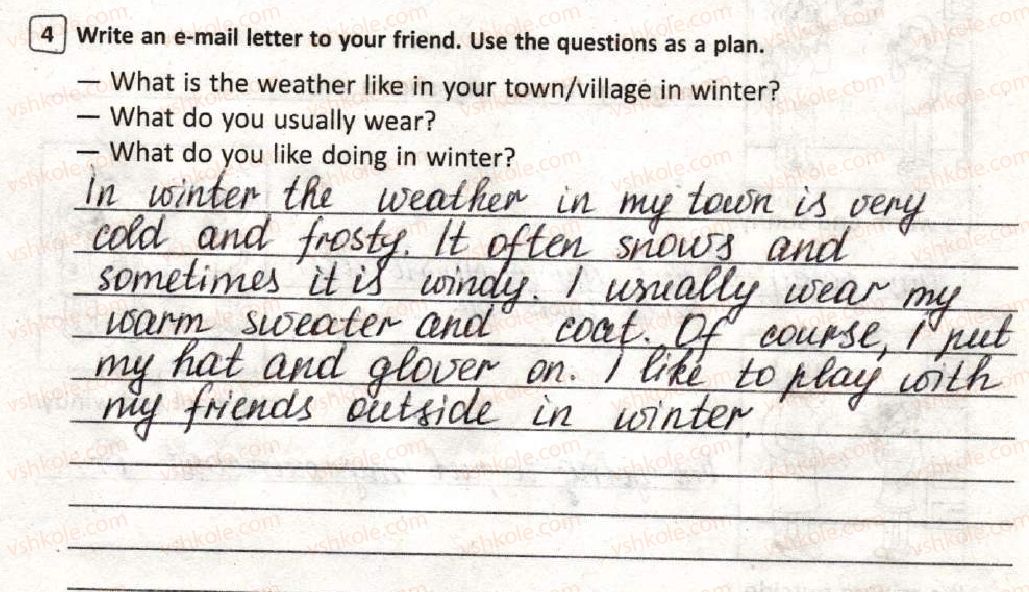 4 Write an e-mail letter to your friend. Use the questions as a plan.
— What is the weather like in your town/village in winter?
— What do you usually wear?
— What do you like doing in winter?
In winter the weather in my town is very
cold and frosty. It often snows and
sometimes it is windy. I usually wear my
warm sweater and coat. Of course, I put
my hat and glover on. I like to play with
my friends outside in winter.